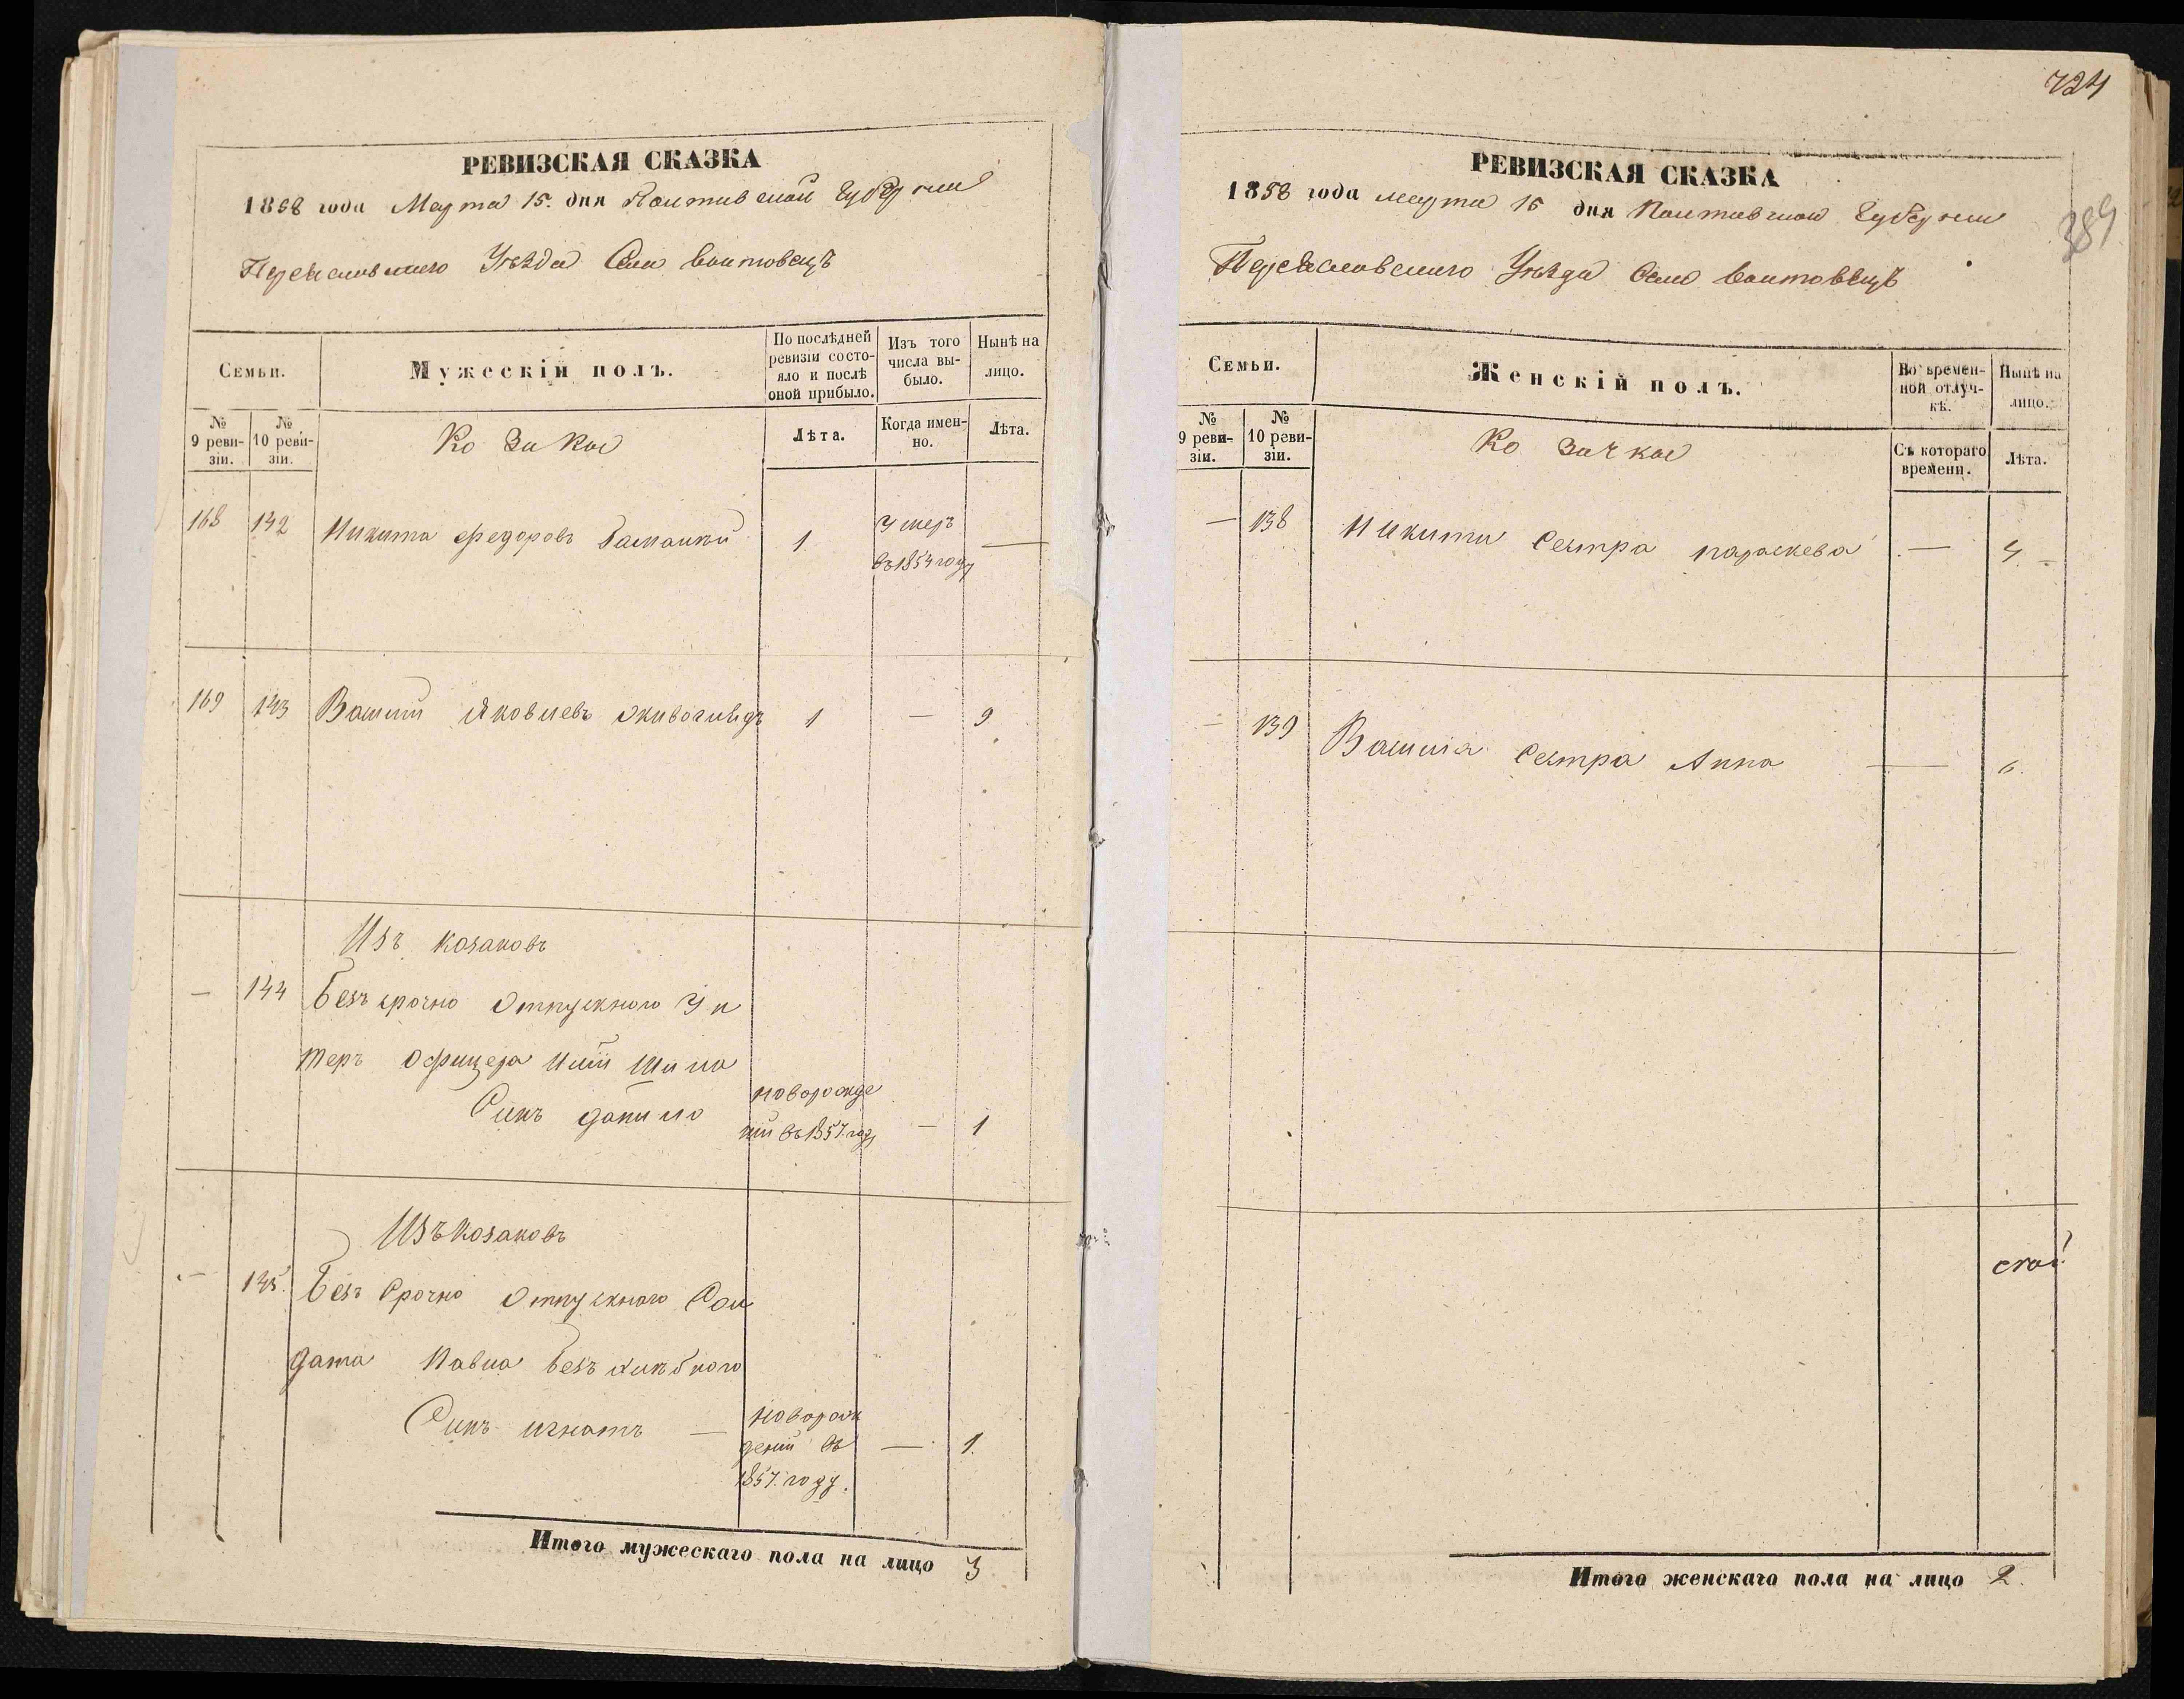 РЕВИЗСКАЯ СКАЗКА
1858 года Марта 15. дня Полтавской Губерніи
Переяславского Уѣзда Села Воитовецъ
Семьи.
Мужескій полъ.
По послѣдней ревизіи состояло и послѣ оной прибыло.
Изъ того числа выбыло.
Нынѣ на лицо.
№ 9 ревизіи.
№ 10 ревизіи.
Козака
Лѣта.
Когда именно.
Лѣта.
168 142 Никита Федоровъ 1. Умеръ —
въ 1854 году
169 143 Василий Яковлевъ 1 — 9
Изъ козаковъ
— 144 Безъ срочно Отпускного Ун
теръ Офицера
Синъ данило новорожде
ний въ 1857. году — 1
Изъ козаковъ
— 145. Безъ Срочно Отпускного Сол
дата Павла
Синъ игнатъ — новорож
дений въ — 1.
1857. году.
Итого мужескаго пола на лицо 3
724
389
РЕВИЗСКАЯ СКАЗКА
1858 года Марта 15 дня Полтавской Губерніи
Переяславского Уѣзда Села Воитовецъ
Семьи.
Женскій полъ.
Во временной отлучкѣ.
Нынѣ на лицо.
№ 9 ревизіи.
№ 10 ревизіи.
Козачка
Съ котораго времени.
Лѣта.
— 138 Никити Сестра параскева — 4
— 139 Василія Сестра Анна — 6.
Итого женскаго пола на лицо 2.